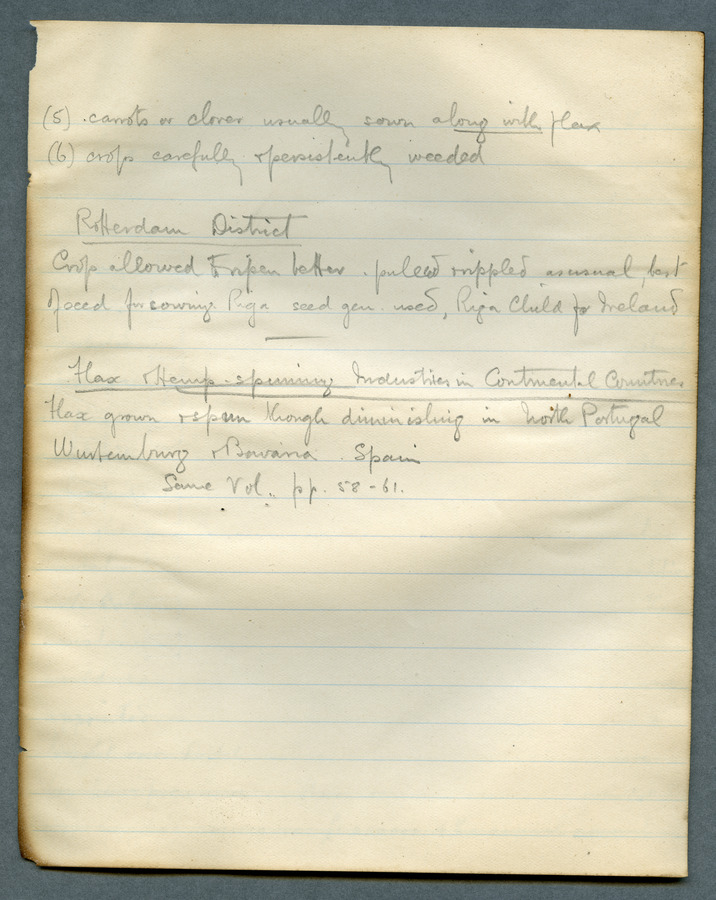 (5) carrots or clover usually sown along with flax
(6) crops carefully & persistently weeded
Rotterdam District
Crop allowed to ripen better. pulled & rippled as usual, best
of seed for sowing. Riga seed gen. used, Riga Child for Ireland
Flax & Hemp-spinning Industries in Continental Countries
Flax grown & spun though diminishing in North Portugal
Wurtemburg & Bavaria. Spain
Same Vol., pp. 58-61.